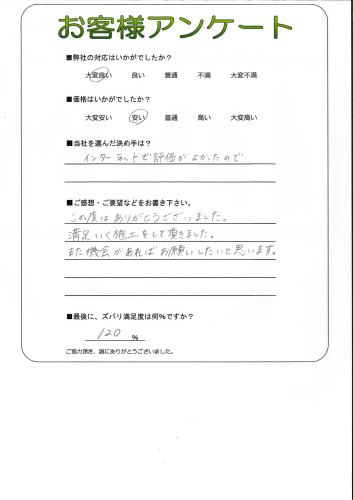 お客様アンケート
■弊社の対応はいかがでしたか？
大変良い 良い 普通 不満 大変不満
■価格はいかがでしたか？
大変安い 安い 普通 高い 大変高い
■当社を選んだ決め手は？
インターネットで評価がよかったので
■ご感想・ご要望などをお書き下さい。
この度はありがとうございました。
満足いく施工をして頂きました。
また機会があればお願いしたいと思います。
■最後に、ズバリ満足度は何％ですか？
120 %
ご協力頂き、誠にありがとうございました。